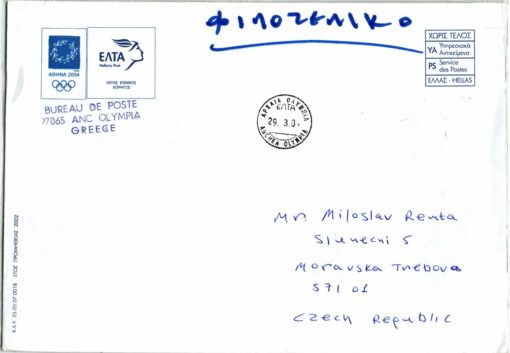 ΦΙΛΟΤΕΛΙΚΟ
ΑΘΗΝΑ 2004
ΕΛΤΑ
Hellenic Post
ΜΕΓΑΣ ΕΘΝΙΚΟΣ
ΧΟΡΗΓΟΣ
ΧΩΡΙΣ ΤΕΛΟΣ
ΥΑ Υπηρεσιακά Αντικείμενα
PS Service des Postes
ΕΛΛΑΣ - HELLAS
BUREAU DE POSTE
27065 ANC OLYMPIA
GREECE
ΑΡΧΑΙΑ ΟΛΥΜΠΙΑ
ΕΛΤΑ
29. 3.0
ANCHEA OLYMPIA
Mr. Miloslav Renta
Slunecni 5
Moravska Trebova
571 01
Czech Republic
Κ.Α.Υ. 23.05.07.0018 ΕΤΟΣ ΠΡΟΜΗΘΕΙΑΣ 2002